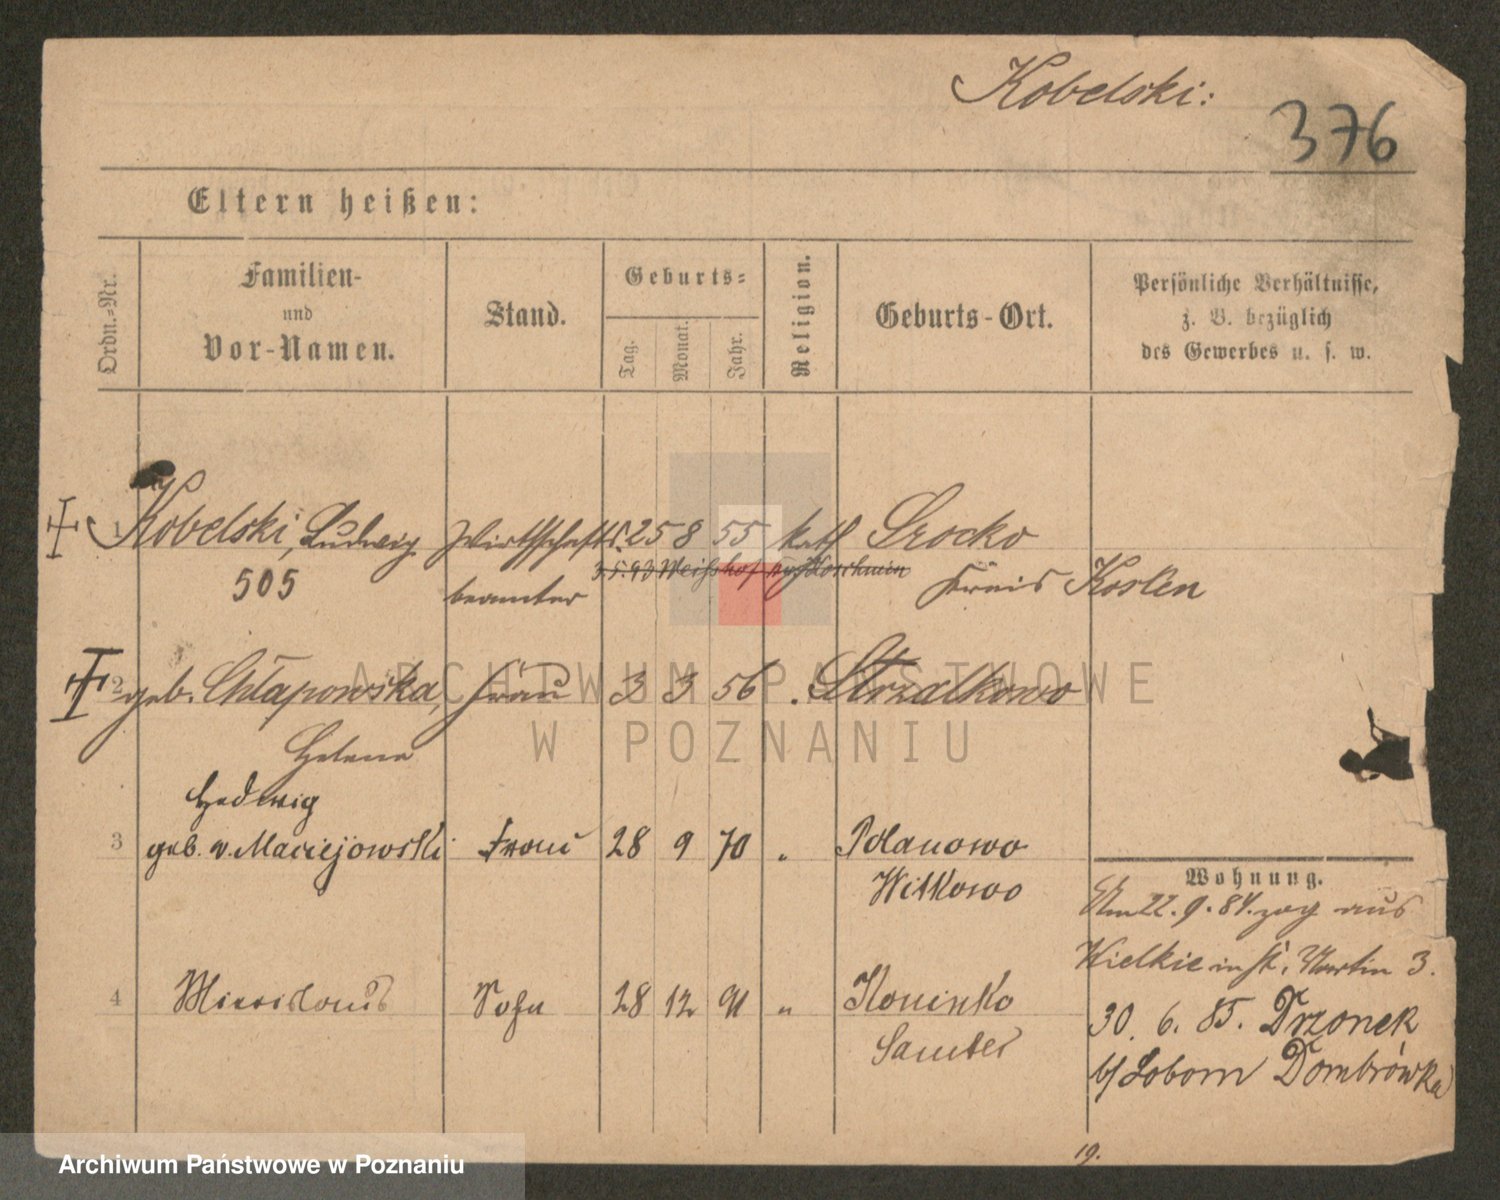 Kobelski:
376
Eltern heißen:
Ordn.-Nr.
Familien-
und
Vor-Namen.
Stand.
Geburts-
Tag.
Monat.
Jahr.
Religion.
Geburts-Ort.
Persönliche Verhältnisse,
z. B. bezüglich
des Gewerbes u. s. w.
1 Kobelski, Ludwig Wirthschafts 25 8 55 kath Srocko
505 beamter 3.5.93 Weisshof Koschmin Kreis Kosten
2 geb. Chłapowska, Frau 3 3 56 " Strzalkowo
Helene
Hedwig
3 geb. v. Maciejowski Frau 28 9 70 " Polanowo
Witkowo
Wohnung.
Am 22.9.84. zog aus
Wielkie in St. Martin 3.
4 Miecislaus Sohn 28 12 91 " Koninko
Samter
30. 6. 85. Drzonek
b/ Dombrówka
19.
ARCHIWUM PAŃSTWOWE
W POZNANIU
Archiwum Państwowe w Poznaniu